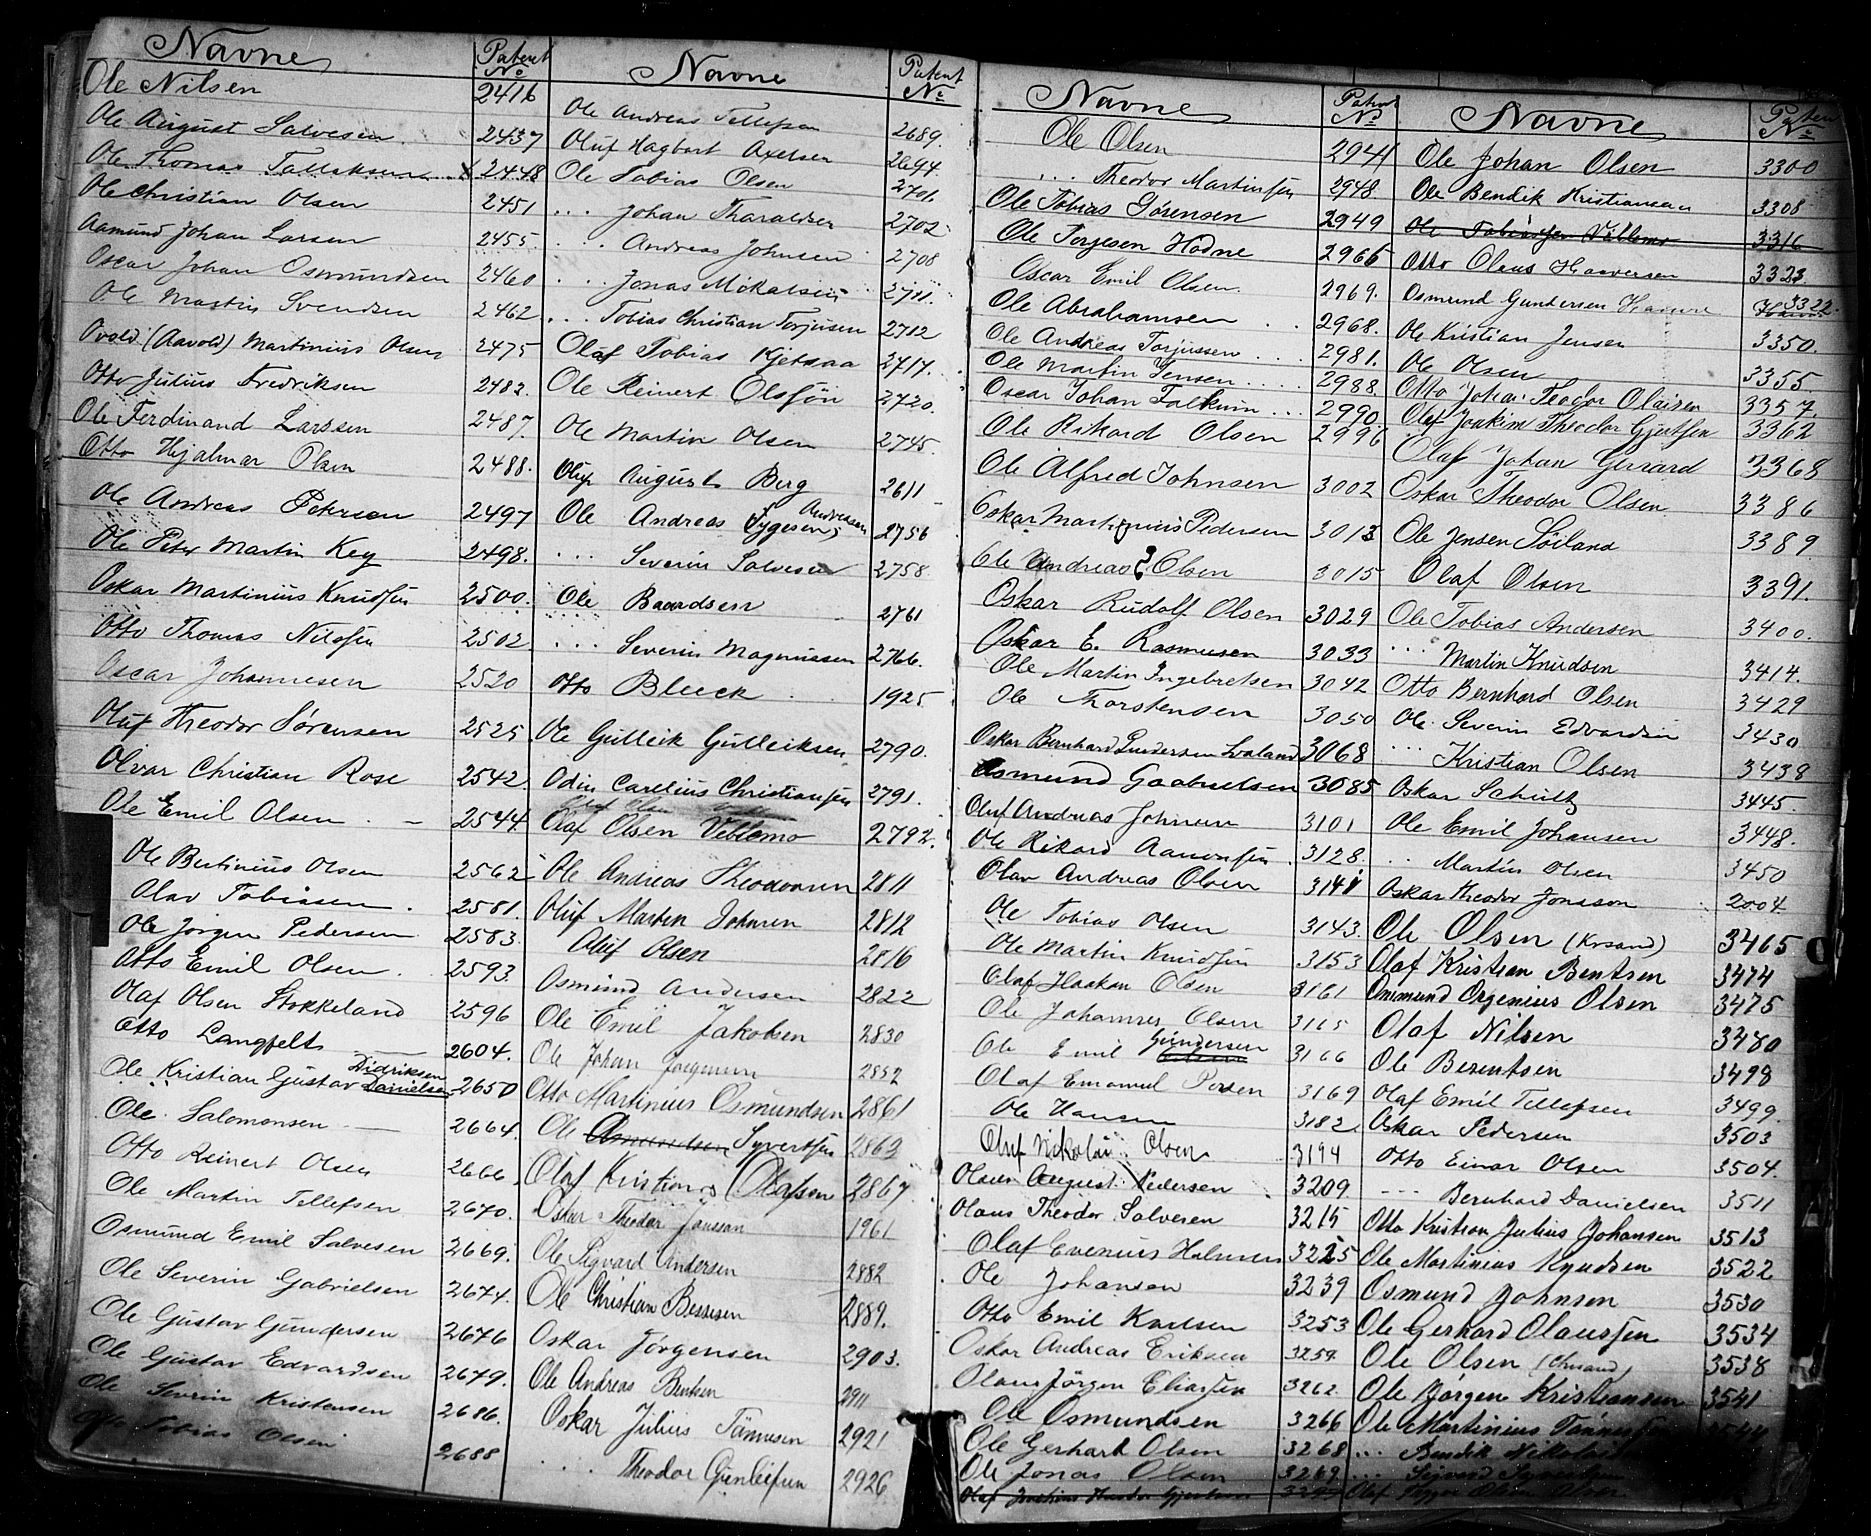 Navne Patent No
Ole Nilsen 2416
Ole August Salvesen 2437
Ole Thomas Tallaksen x 2448
Ole Christian Olsen 2451
Aamund Johan Larsen 2455
Oscar Johan Osmundsen 2460
Ole Martin Svendsen 2462
Ovold (Aavold) Martinius Olsen 2475
Otto Julius Fredriksen 2482
Ole Ferdinand Larssen 2487
Otto Hjalmar Olsen 2488
Ole Andreas Petersen 2497
Ole Peter Martin Key 2498
Oskar Martinius Knudsen 2500
Otto Thomas Nilsen 2502
Oscar Johannesen 2520
Oluf Theodor Sørensen 2525
Olvar Christian Rose 2542
Ole Emil Olsen 2544
Ole Bertinius Olsen 2562
Olav Tobiassen 2581
Ole Jørgen Pedersen 2583
Otto Emil Olsen 2593
Olaf Olsen Stokkeland 2596
Otto Langfelt 2604
Ole Kristian Gustav Danielsen Didriksen 2650
Ole Salomonsen 2664
Otto Reinert Olsen 2666
Ole Martin Tellefsen 2670
Osmund Emil Salvesen 2669
Ole Severin Gabrielsen 2674
Ole Gustav Gundersen 2676
Ole Gustav Edvardsen 2679
Ole Severin Kristensen 2686
Otto Tobias Olsen 2688
Navne Patent No
Ole Andreas Tellefsen 2689
Oluf Hagbart Axelsen 2694
Ole Tobias Olsen 2701
... Johan Tharaldsen 2702
... Andreas Johnsen 2708
... Jonas Mikalsen 2711
... Tobias Christian Torjusen 2712
Olaf Tobias Kjetsaa 2717
Ole Reinert Olssøn 2720
Ole Martin Olsen 2745
Oluf August Berg 2611
Ole Andreas Tygesen, Andersen 2756
... Severin Salvesen 2758
Ole Baardsen 2761
... Severin Magnussen 2766
Otto Bleeck 1925
Ole Gulleik Gulleiksen 2790
Odin Carelius Christiansen 2791
Olaf Olsen Veblemo 2792
Ole Andreas Theodorsen 2811
Oluf Martin Johnsen 2812
Oluf Olsen 2816
Osmund Andersen 2822
Ole Emil Jakobsen 2830
Ole Johan Jørgensen 2852
Otto Martinius Osmundsen 2861
Ole Asmundsen Syvertsen 2863
Olaf Kristian Olafson 2867
Oskar Theodor Jonsson 1961
Ole Sigvard Andersen 2882
Ole Christian Bessesen 2889
Oskar Jørgensen 2903
Ole Andreas Bentsen 2911
Oskar Julius Tønnesen 2921
... Theodor Gunleifsen 2926
Navne Patent No
Ole Olsen 2941
... Theodor Martinsen 2948
Ole Tobias Sørensen 2949
Ole Torjesen Hodne 2966
Oscar Emil Olsen 2969
Ole Abrahamsen 2968
Ole Andreas Torjussen 2981
Ole Martin Jensen 2988
Oscar Johan Falkum 2990
Ole Rikard Olsen 2996
Ole Alfred Johnsen 3002
Oskar Martinius Pedersen 3013
Ole Andreas Olsen 3015
Oskar Rudolf Olsen 3029
Oskar E. Rasmusen 3033
Ole Martin Ingebretsen 3042
Ole Thorstensen 3050
Oskar Bernhard Gundersen Lvaland 3068
Osmund Gabrielsen 3085
Oluf Andreas Johnsen 3101
Ole Rikard Aanonsen 3128
Olav Andreas Olsen 3141
Ole Tobias Olsen 3143
Ole Martin Knudsen 3153
Olaf Haakon Olsen 3161
Ole Johannes Olsen 3165
Ole Emil Gundersen 3166
Olaf Emanuel Persen 3169
Ole Hansen 3182
Oluf Nikolai Olsen 3194
Olaus August Pedersen 3209
Olaus Theodor Salvesen 3215
Olaf Evenius Halvorsen 3225
Ole Johansen 3239
Otto Emil Karlsen 3253
Oskar Andreas Eriksen 3257
Olaus Jørgen Eliassen 3262
Ole Osmundsen 3266
Ole Gerhart Olsen 3268
Ole Jonas Olsen 3269
Navne Patent No
Ole Johan Olsen 3300
Ole Bendik Kristiansen 3308
Ole Tobiassen Veblemo 3316
Otto Olaus Haaversen 3323
Osmund Gundersen 3322
Ole Kristian Jensen 3350
Ole Olsen 3355
Otto Johan Teodor Olaisen 3357
Olaf Joakim Theodor Gjertsen 3362
Olaf Johan Gerrard 3368
Oskar Theodor Olsen 3386
Ole Jensen Søiland 3389
Olaf Olsen 3391
Ole Tobias Andersen 3400
... Martin Knudsen 3414
Otto Bernhard Olsen 3429
Ole Severin Edvardsen 3430
... Kristian Olsen 3438
Oskar Schultz 3445
Ole Emil Johansen 3448
.. Martin Olsen 3450
Oskar Theodor Jonsson 2004
Ole Olsen (Krsand) 3465
Olaf Kristian Bentsen 3474
Ommund Orgenius Olsen 3475
Olaf Nilsen 3480
Ole Berentsen 3498
Olaf Emil Tellefsen 3499
Oskar Pedersen 3503
Otto Einar Olsen 3504
--- Bernhard Danielsen 3511
Otto Kristian Julius Johansen 3513
Ole Martinius Knudsen 3522
Osmund Johnsen 3530
Ole Gerhard Olaussen 3534
Ole Olsen (Chrsand) 3538
Ole Jørgen Kristiansen 3541
Ole Martinius Tønnessen
... Bendik Nikolai
... Sigvard
Olaf